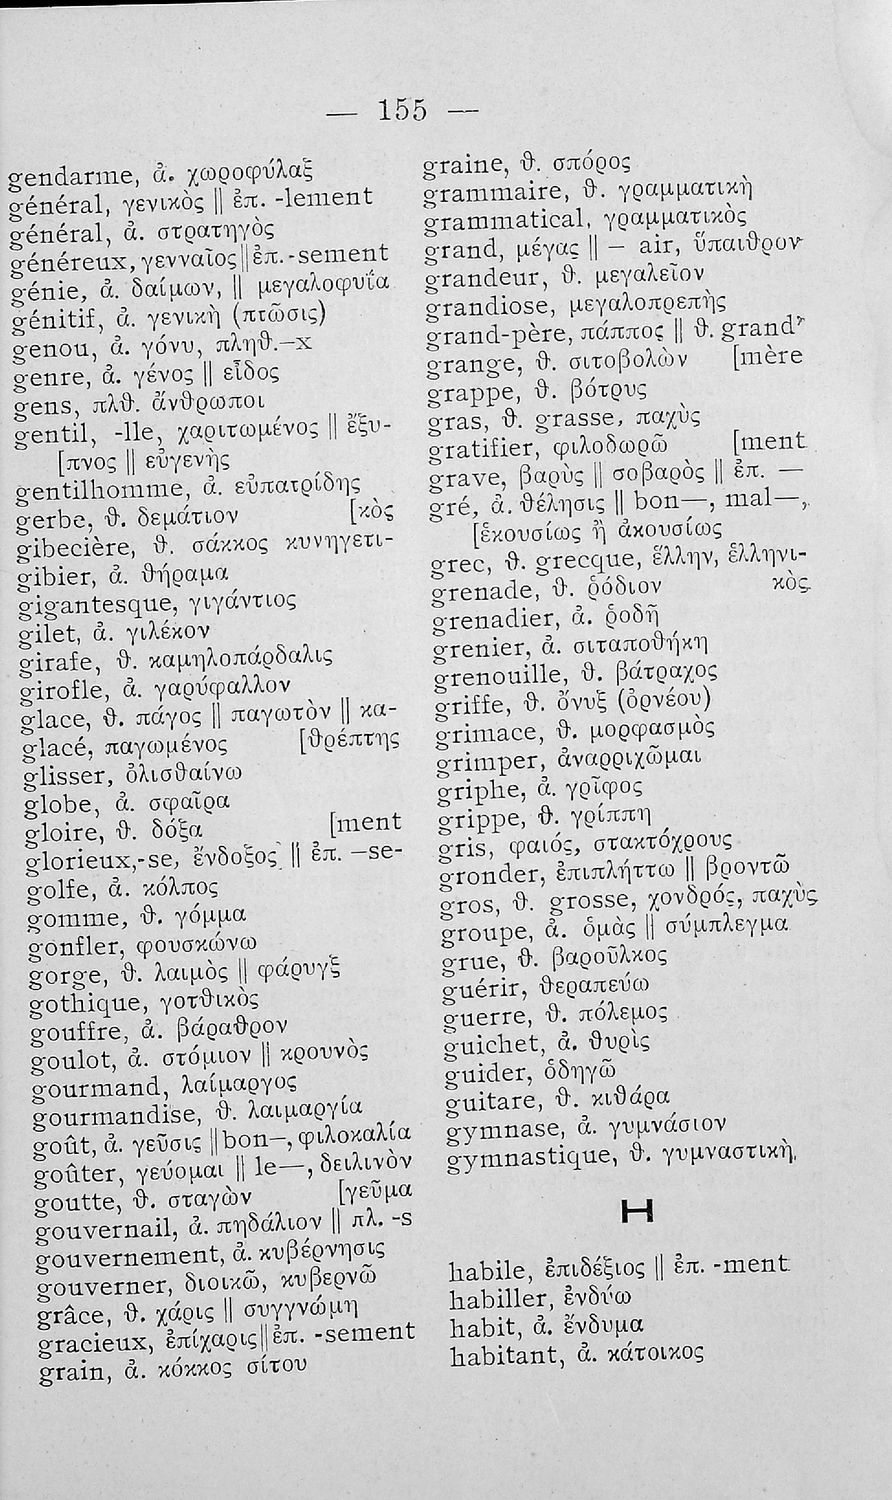 — 155 —
gendarme, ἀ. χωροφύλαξ
général, γενικὸς || ἐπ. -lement
général, ἀ. στρατηγὸς
généreux, γενναῖος || ἐπ. -sement
génie, ἀ. δαίμων, || μεγαλοφυΐα
génitif, ἀ. γενικὴ (πτῶσις)
genou, ἀ. γόνυ, πληθ.—x
genre, ἀ. γένος || εἶδος
gens, πλθ. ἄνθρωποι
gentil, -lle, χαριτωμένος || ἔξυ-
[πνος || εὐγενὴς
gentilhomme, ἀ. εὐπατρίδης
gerbe, θ. δεμάτιον [κὸς
gibecière, θ. σάκκος κυνηγετι-
gibier, ἀ. θήραμα
gigantesque, γιγάντιος
gilet, ἀ. γιλέκον
girafe, θ. καμηλοπάρδαλις
girofle, ἀ. γαρύφαλλον
glace, θ. πάγος || παγωτὸν || κα-
glacé, παγωμένος [θρέπτης
glisser, ὀλισθαίνω
globe, ἀ. σφαῖρα
gloire, θ. δόξα [ment
glorieux,-se, ἔνδοξος || ἐπ. —se-
golfe, ἀ. κόλπος
gomme, θ. γόμμα
gonfler, φουσκώνω
gorge, θ. λαιμὸς || φάρυγξ
gothique, γοτθικὸς
gouffre, ἀ. βάραθρον
goulot, ἀ. στόμιον || κρουνὸς
gourmand, λαίμαργος
gourmandise, θ. λαιμαργία
goût, ἀ. γεῦσις || bon—, φιλοκαλία
goûter, γεύομαι || le—, δειλινὸν
goutte, θ. σταγὼν [γεῦμα
gouvernail, ἀ. πηδάλιον || πλ. -s
gouvernement, ἀ. κυβέρνησις
gouverner, διοικῶ, κυβερνῶ
grâce, θ. χάρις || συγγνώμη
gracieux, ἐπίχαρις || ἐπ. -sement
grain, ἀ. κόκκος σίτου
graine, θ. σπόρος
grammaire, θ. γραμματικὴ
grammatical, γραμματικὸς
grand, μέγας || — air, ὕπαιθρον
grandeur, θ. μεγαλεῖον
grandiose, μεγαλοπρεπὴς
grand-père, πάππος || θ. grand'
grange, θ. σιτοβολὼν [mère
grappe, θ. βότρυς
gras, θ. grasse, παχὺς
gratifier, φιλοδωρῶ [ment
grave, βαρὺς || σοβαρὸς || ἐπ. —
gré, ἀ. θέλησις || bon—, mal—,
[ἑκουσίως ἢ ἀκουσίως
grec, θ. grecque, ἕλλην, ἑλληνι-
grenade, θ. ῥόδιον κὸς
grenadier, ἀ. ῥοδῆ
grenier, ἀ. σιταποθήκη
grenouille, θ. βάτραχος
griffe, θ. ὄνυξ (ὀρνέου)
grimace, θ. μορφασμὸς
grimper, ἀναρριχῶμαι
griphe, ἀ. γρῖφος
grippe, θ. γρίππη
gris, φαιός, στακτόχρους
gronder, ἐπιπλήττω || βροντῶ
gros, θ. grosse, χονδρός, παχὺς
groupe, ἀ. ὁμὰς || σύμπλεγμα
grue, θ. βαροῦλκος
guérir, θεραπεύω
guerre, θ. πόλεμος
guichet, ἀ. θυρὶς
guider, ὁδηγῶ
guitare, θ. κιθάρα
gymnase, ἀ. γυμνάσιον
gymnastique, θ. γυμναστικὴ
H
habile, ἐπιδέξιος || ἐπ. -ment
habiller, ἐνδύω
habit, ἀ. ἔνδυμα
habitant, ἀ. κάτοικος